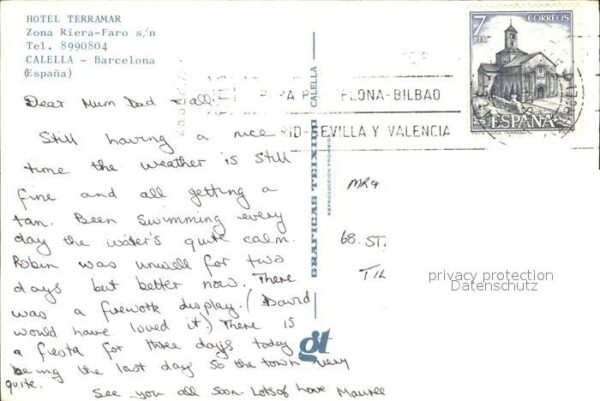 HOTEL TERRAMAR
Zona Riera-Faro s/n
Tel. 8990804
CALELLA - Barcelona
(España)
Dear Mum Dad & all.
Still having a nice
time the weather is still
fine and all getting a
tan. Been swimming every
day the water's quite calm.
Robin was unwell for two
days but better now. There
was a firework display. (David
would have loved it.) There is
a fiesta for three days today
being the last day so the town very
quite.
See you all soon. Lots of Love
CALELLA
GRAFICAS TEIXIDO
REPRODUCCION
gt
7
PTA
CORREOS
ESPAÑA
ELONA-BILBAO
SEVILLA Y VALENCIA
MR &
68. ST.
privacy protection
Datenschutz